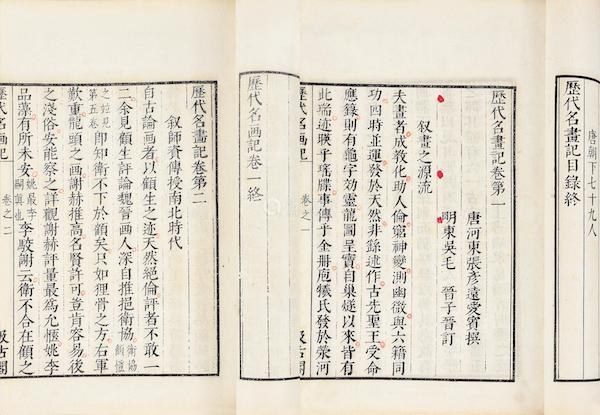 唐朝下七十九人
歷代名畫記目錄終
歷代名畫記卷第一
唐河東張彥遠愛賓撰
明東吳毛晉子晉訂
敘畫之源流
夫畫者成敎化助人倫窮神變測幽微與六籍同
功四時並運發於天然非繇述作古先聖王受命
應籙則有龜字效靈龍圖呈寶自巢燧以來皆有
此瑞迹暎乎瑤牒事傳乎金册庖犧氏發於滎河
歷代名画記 卷之一 汲古閣
歷代名画記卷一終
歷代名畫記卷第二
敘師資傳授南北時代
自古論畫者以顧生之迹天然絕倫評者不敢一
二余見顧生評論魏晉画人深自推挹衛協衛協顧愷
之竝見第五卷即知衛不下於顧矣只如狸骨之方右軍
歎重龍頭之画謝赫推高名賢許可豈肯容易後
之淺俗安能察之詳觀謝赫評量最為允愜姚李
品藻有所未安姚最李嗣真也李駮謝云衛不合在顧之
歷代名画記 卷之二 汲古閣